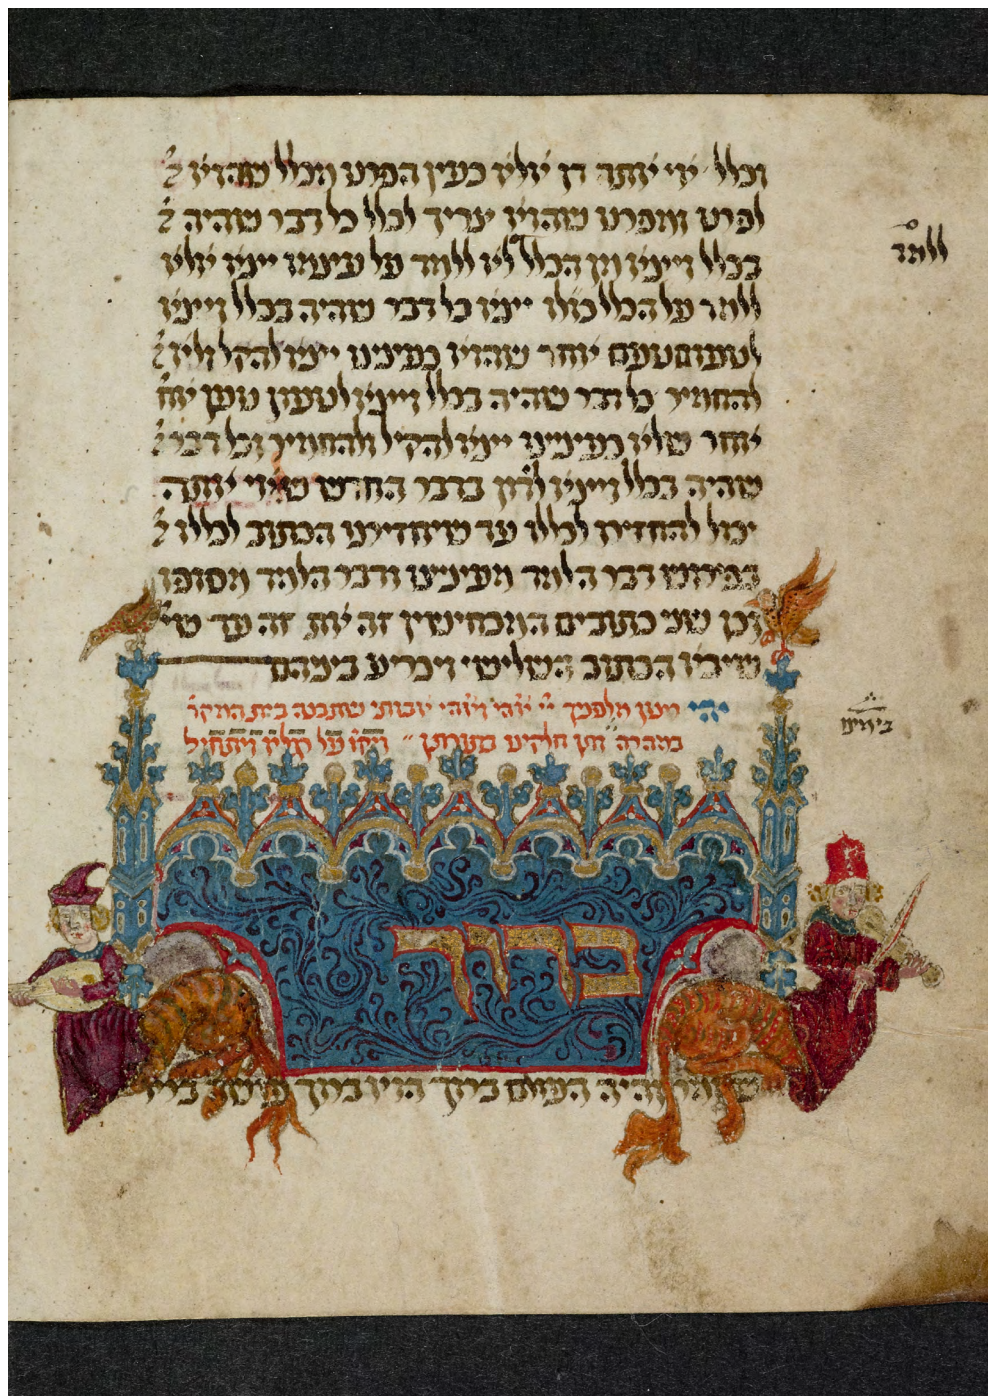 וכלל אי אתה דן אלא כעין הפרט מכלל שהוא
לפרט ומפרט שהוא צריך לכלל כל דבר שהיה
בכלל ויצא מן הכלל לא ללמד על עצמו יצא אלא
ללמד
ללמד על הכלל כולו יצא כל דבר שהיה בכלל ויצא
לטעום טעם אחר שהוא כענינו יצא להקל ולא
להחמיר כל דבר שהיה בכלל ויצא לטעון טען אח
אחר שלא כענינו יצא להקל ולהחמיר וכל דבר
שהיה בכלל ויצא לדון בדבר החדש שאי אתה
יכול להחזירו לכללו עד שיחזירנו הכתוב לכללו
בפירוש דבר הלמד מעינינו ודבר הלמד מסופו
וכן שני כתובים המכחישין זה את זה עד שי
שיבוא הכתוב השלישי ויכריע ביניהם
יהי רצון מלפניך יי אלהי ואלהי אבותי שתבנה בית המקד
בימינו
במהרה ותן חלקינו בתורתך וקם על רגליו ויתחיל
ברוך
שאמר והיה העולם ברוך הוא ברוך